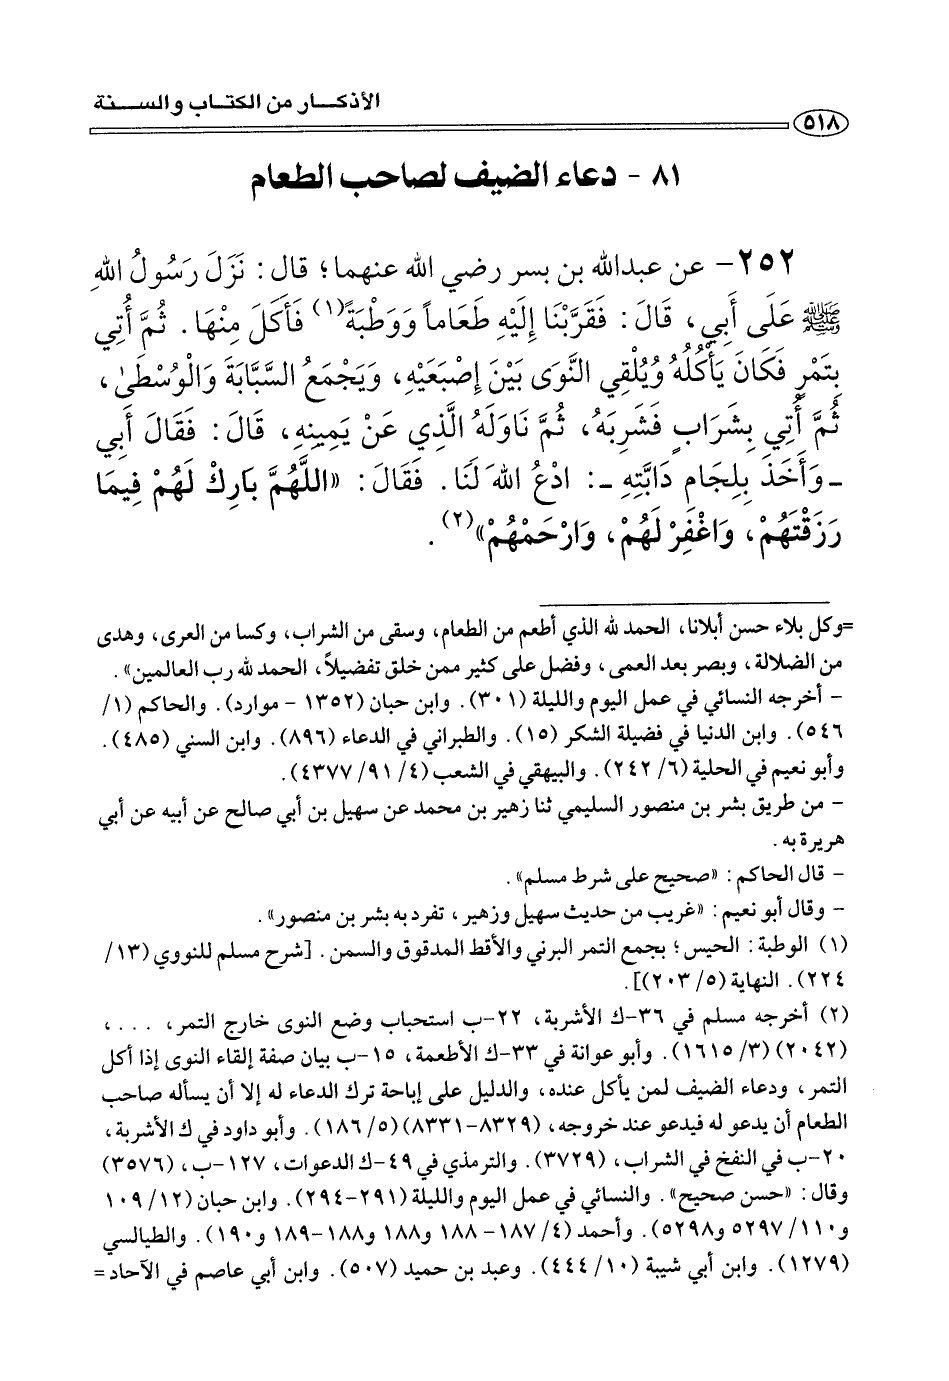 الأذكار من الكتاب والسنة
٥١٨
٨١ - دعاء الضيف لصاحب الطعام
٢٥٢- عن عبدالله بن بسر رضي الله عنهما؛ قال: نَزَلَ رَسُولُ اللهِ
ﷺ عَلَى أَبِي، قَالَ: فَقَرَّبْنَا إِلَيْهِ طَعَاماً وَوَطْبَةً(١) فَأَكَلَ مِنْهَا. ثُمَّ أُتِي
بِتَمْرٍ فَكَانَ يَأْكُلُهُ وَيُلْقِي النَّوَى بَيْنَ إِصْبَعَيْهِ، وَيَجْمَعُ السَّبَّابَةَ وَالْوُسْطَىٰ،
ثُمَّ أُتِي بِشَرَابٍ فَشَرِبَهُ، ثُمَّ نَاوَلَهُ الَّذِي عَنْ يَمِينِهِ، قَالَ: فَقَالَ أَبِي
ـ وَأَخَذَ بِلِجَامِ دَابَّتِهِ ـ: ادْعُ اللهَ لَنَا. فَقَالَ: «اللَّهُمَّ بَارِكْ لَهُمْ فِيمَا
رَزَقْتَهُمْ، وَاغْفِرْ لَهُمْ، وَارْحَمْهُمْ»(٢).
=وكل بلاء حسن أبلانا، الحمد لله الذي أطعم من الطعام، وسقى من الشراب، وكسا من العرى، وهدى
من الضلالة، وبصر بعد العمى، وفضل على كثير ممن خلق تفضيلاً، الحمد لله رب العالمين».
- أخرجه النسائي في عمل اليوم والليلة (٣٠١). وابن حبان (١٣٥٢ - موارد). والحاكم (١/
٥٤٦). وابن الدنيا في فضيلة الشكر (١٥). والطبراني في الدعاء (٨٩٦). وابن السني (٤٨٥).
وأبو نعيم في الحلية (٦/ ٢٤٢). والبيهقي في الشعب (٤/ ٩١/ ٤٣٧٧).
- من طريق بشر بن منصور السليمي ثنا زهير بن محمد عن سهيل بن أبي صالح عن أبيه عن أبي
هريرة به.
- قال الحاكم: «صحيح على شرط مسلم».
- وقال أبو نعيم: «غريب من حديث سهيل وزهير، تفرد به بشر بن منصور».
(١) الوطبة: الحيس؛ بجمع التمر البرني والأقط المدقوق والسمن. [شرح مسلم للنووي (١٣/
٢٢٤). النهاية (٥/ ٢٠٣)].
(٢) أخرجه مسلم في ٣٦-ك الأشربة، ٢٢-ب استحباب وضع النوى خارج التمر، ...،
(٢٠٤٢) (٣/ ١٦١٥). وأبو عوانة في ٣٣-ك الأطعمة، ١٥-ب بيان صفة إلقاء النوى إذا أكل
التمر، ودعاء الضيف لمن يأكل عنده، والدليل على إباحة ترك الدعاء له إلا أن يسأله صاحب
الطعام أن يدعو له فيدعو عند خروجه، (٨٣٢٩-٨٣٣١) (٥/ ١٨٦). وأبو داود في ك الأشربة،
٢٠-ب في النفخ في الشراب، (٣٧٢٩). والترمذي في ٤٩-ك الدعوات، ١٢٧-ب، (٣٥٧٦)
وقال: «حسن صحيح». والنسائي في عمل اليوم والليلة (٢٩١-٢٩٤). وابن حبان (١٢/ ١٠٩
و١١٠/ ٥٢٩٧ و٥٢٩٨). وأحمد (٤/ ١٨٧- ١٨٨ و١٨٨ و١٨٨-١٨٩ و١٩٠). والطيالسي
(١٢٧٩). وابن أبي شيبة (١٠/ ٤٤٤). وعبد بن حميد (٥٠٧). وابن أبي عاصم في الآحاد=